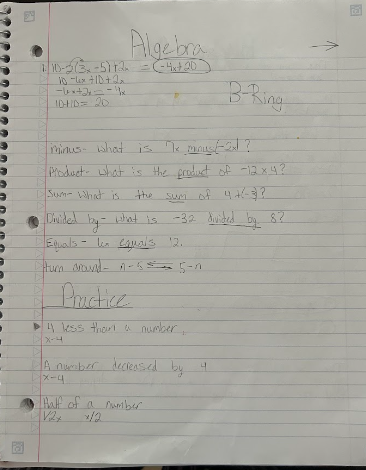 Algebra
1. 10-2(3x-5)+2x = -4x+20
10-6x+10+2x
-6x+2x = -4x
10+10= 20
B-Ring
minus- what is 7x minus(-2x)?
Product- what is the product of -12x4?
Sum- What is the sum of 4+(-3)?
Divided by- what is -32 divided by 8?
Equals- equals 12.
turn around- n-5 5-n
Practice
4 less than a number,
x-4
A number decreased by 4
x-4
Half of a number
1/2x x/2